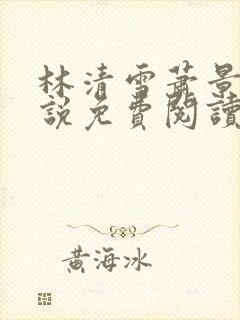 林清雪蕭景
說免費閱讀
黃海冰